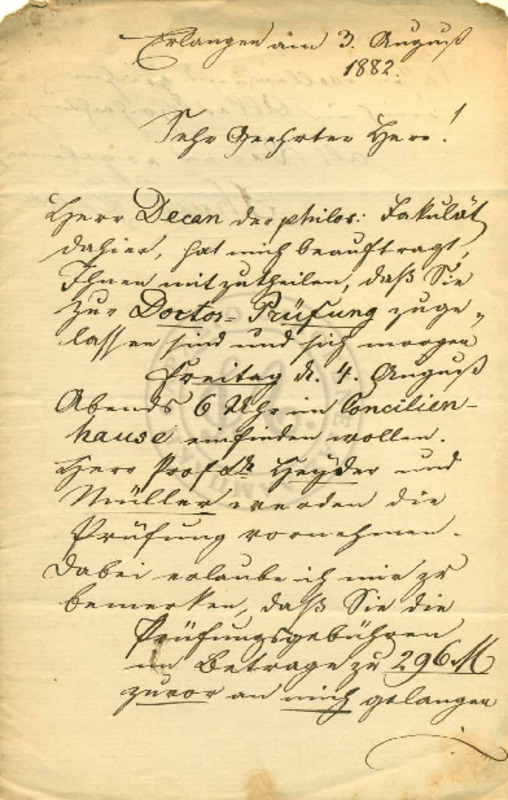 Erlangen am 3. August
1882.
Sehr Geehrter Herr!
Herr Decan der philos: Fakulät
dahier, hat mich beauftragt,
Ihnen mitzutheilen, daß Sie
zur Doctor-Prüfung zuge-
lassen sind und sich morgen
Freitag d. 4. August
Abends 6 Uhr im Concilien-
hause einfinden wollen.
Herr Prof Heyder und
Müller werden die
Prüfung vornehmen.
Dabei erlaube ich mir zu
bemerken, daß Sie die
Prüfungsgebühren
im Betrage zu 296 M
zuvor an mich gelangen